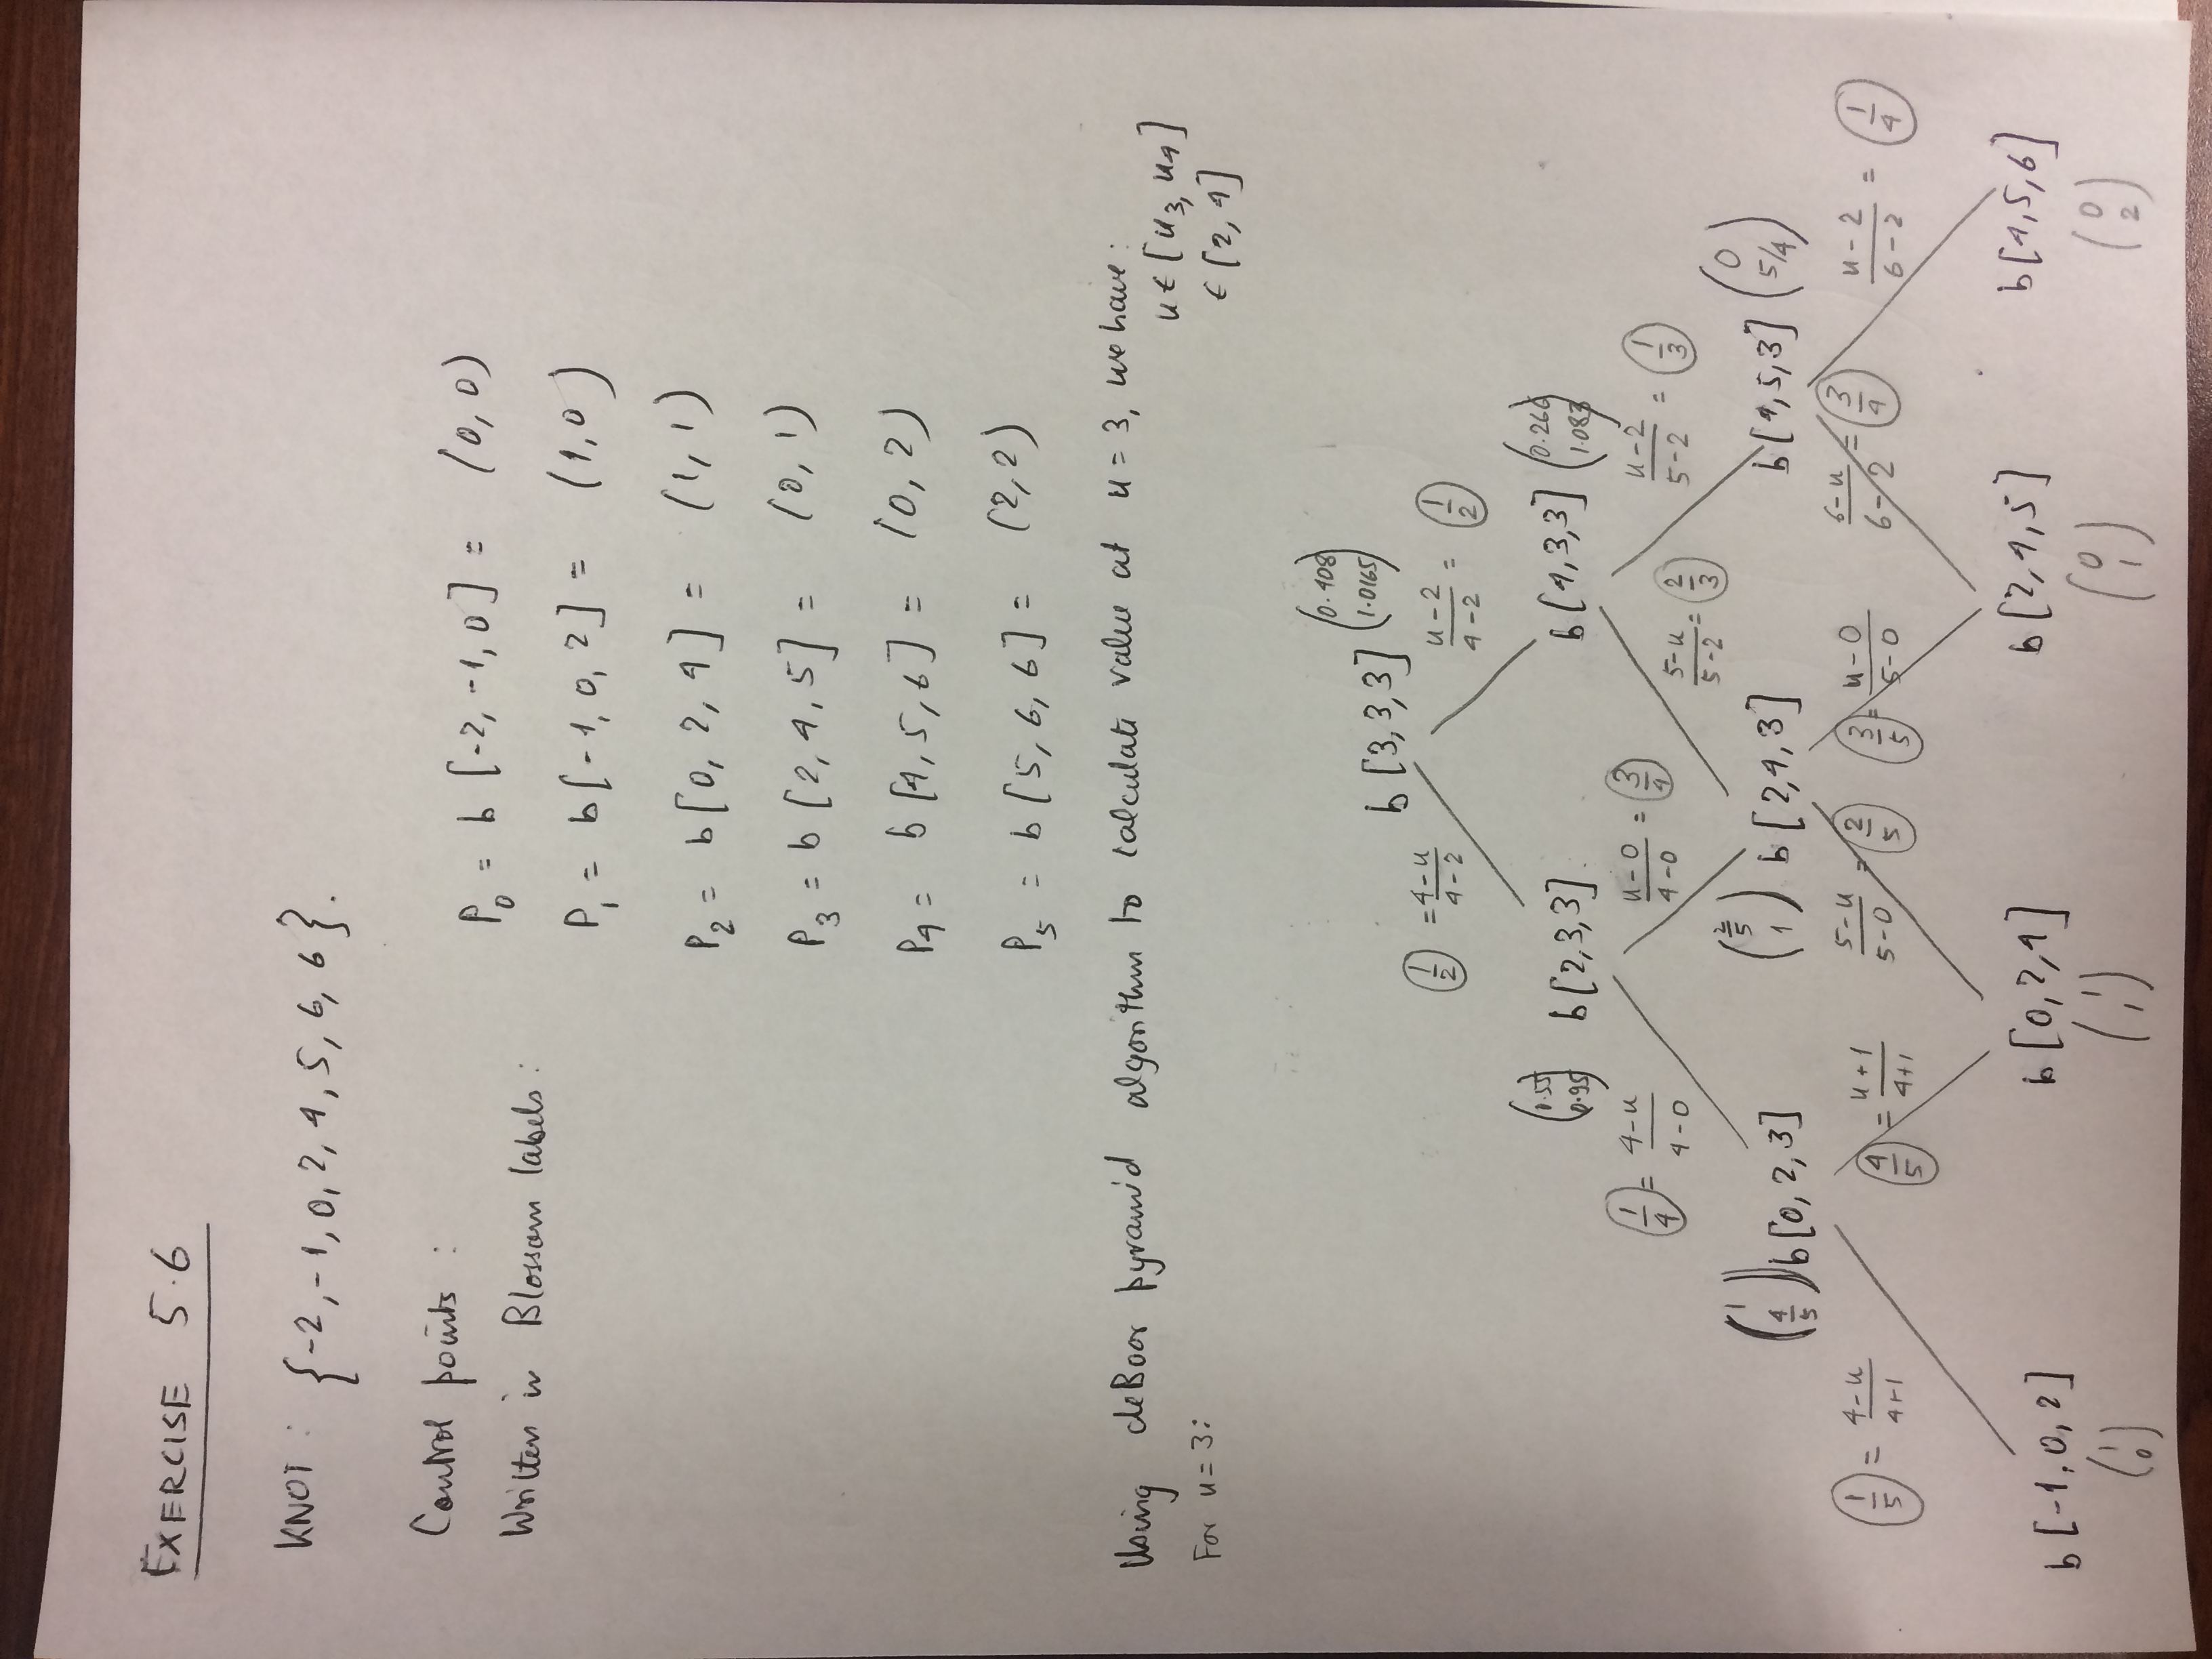 EXERCISE 5.6
KNOT : {-2, -1, 0, 2, 4, 5, 6, 6}.
Control points :
Written in Blossom labels :
P0 = b [-2, -1, 0] = (0, 0)
P1 = b [-1, 0, 2] = (1, 0)
P2 = b [0, 2, 4] = (1, 1)
P3 = b [2, 4, 5] = (0, 1)
P4 = b [4, 5, 6] = (0, 2)
P5 = b [5, 6, 6] = (2, 2)
Using deBoor pyramid algorithm to calculate value at u = 3, we have :
u ∈ [u3, u4]
For u = 3 :
∈ [2, 4]
b [3, 3, 3] (0.408 1.0165)
1/2 = 4-u/4-2 u-2/4-2 = 1/2
(0.55 0.95) b [2, 3, 3] b [4, 3, 3] (0.266 1.083)
1/4 = 4-u/4-0 u-0/4-0 = 3/4 5-u/5-2 = 2/3 u-2/5-2 = 1/3
(1 4/5) b [0, 2, 3] (2/5 1) b [2, 4, 3] b [4, 5, 3] (0 5/4)
1/5 = 4-u/4+1 4/5 = u+1/4+1 5-u/5-0 = 2/5 3/5 = u-0/5-0 6-u/6-2 = 3/4 u-2/6-2 = 1/4
b [-1, 0, 2] b [0, 2, 4] b [2, 4, 5] b [4, 5, 6]
(1 0) (1 1) (0 1) (0 2)